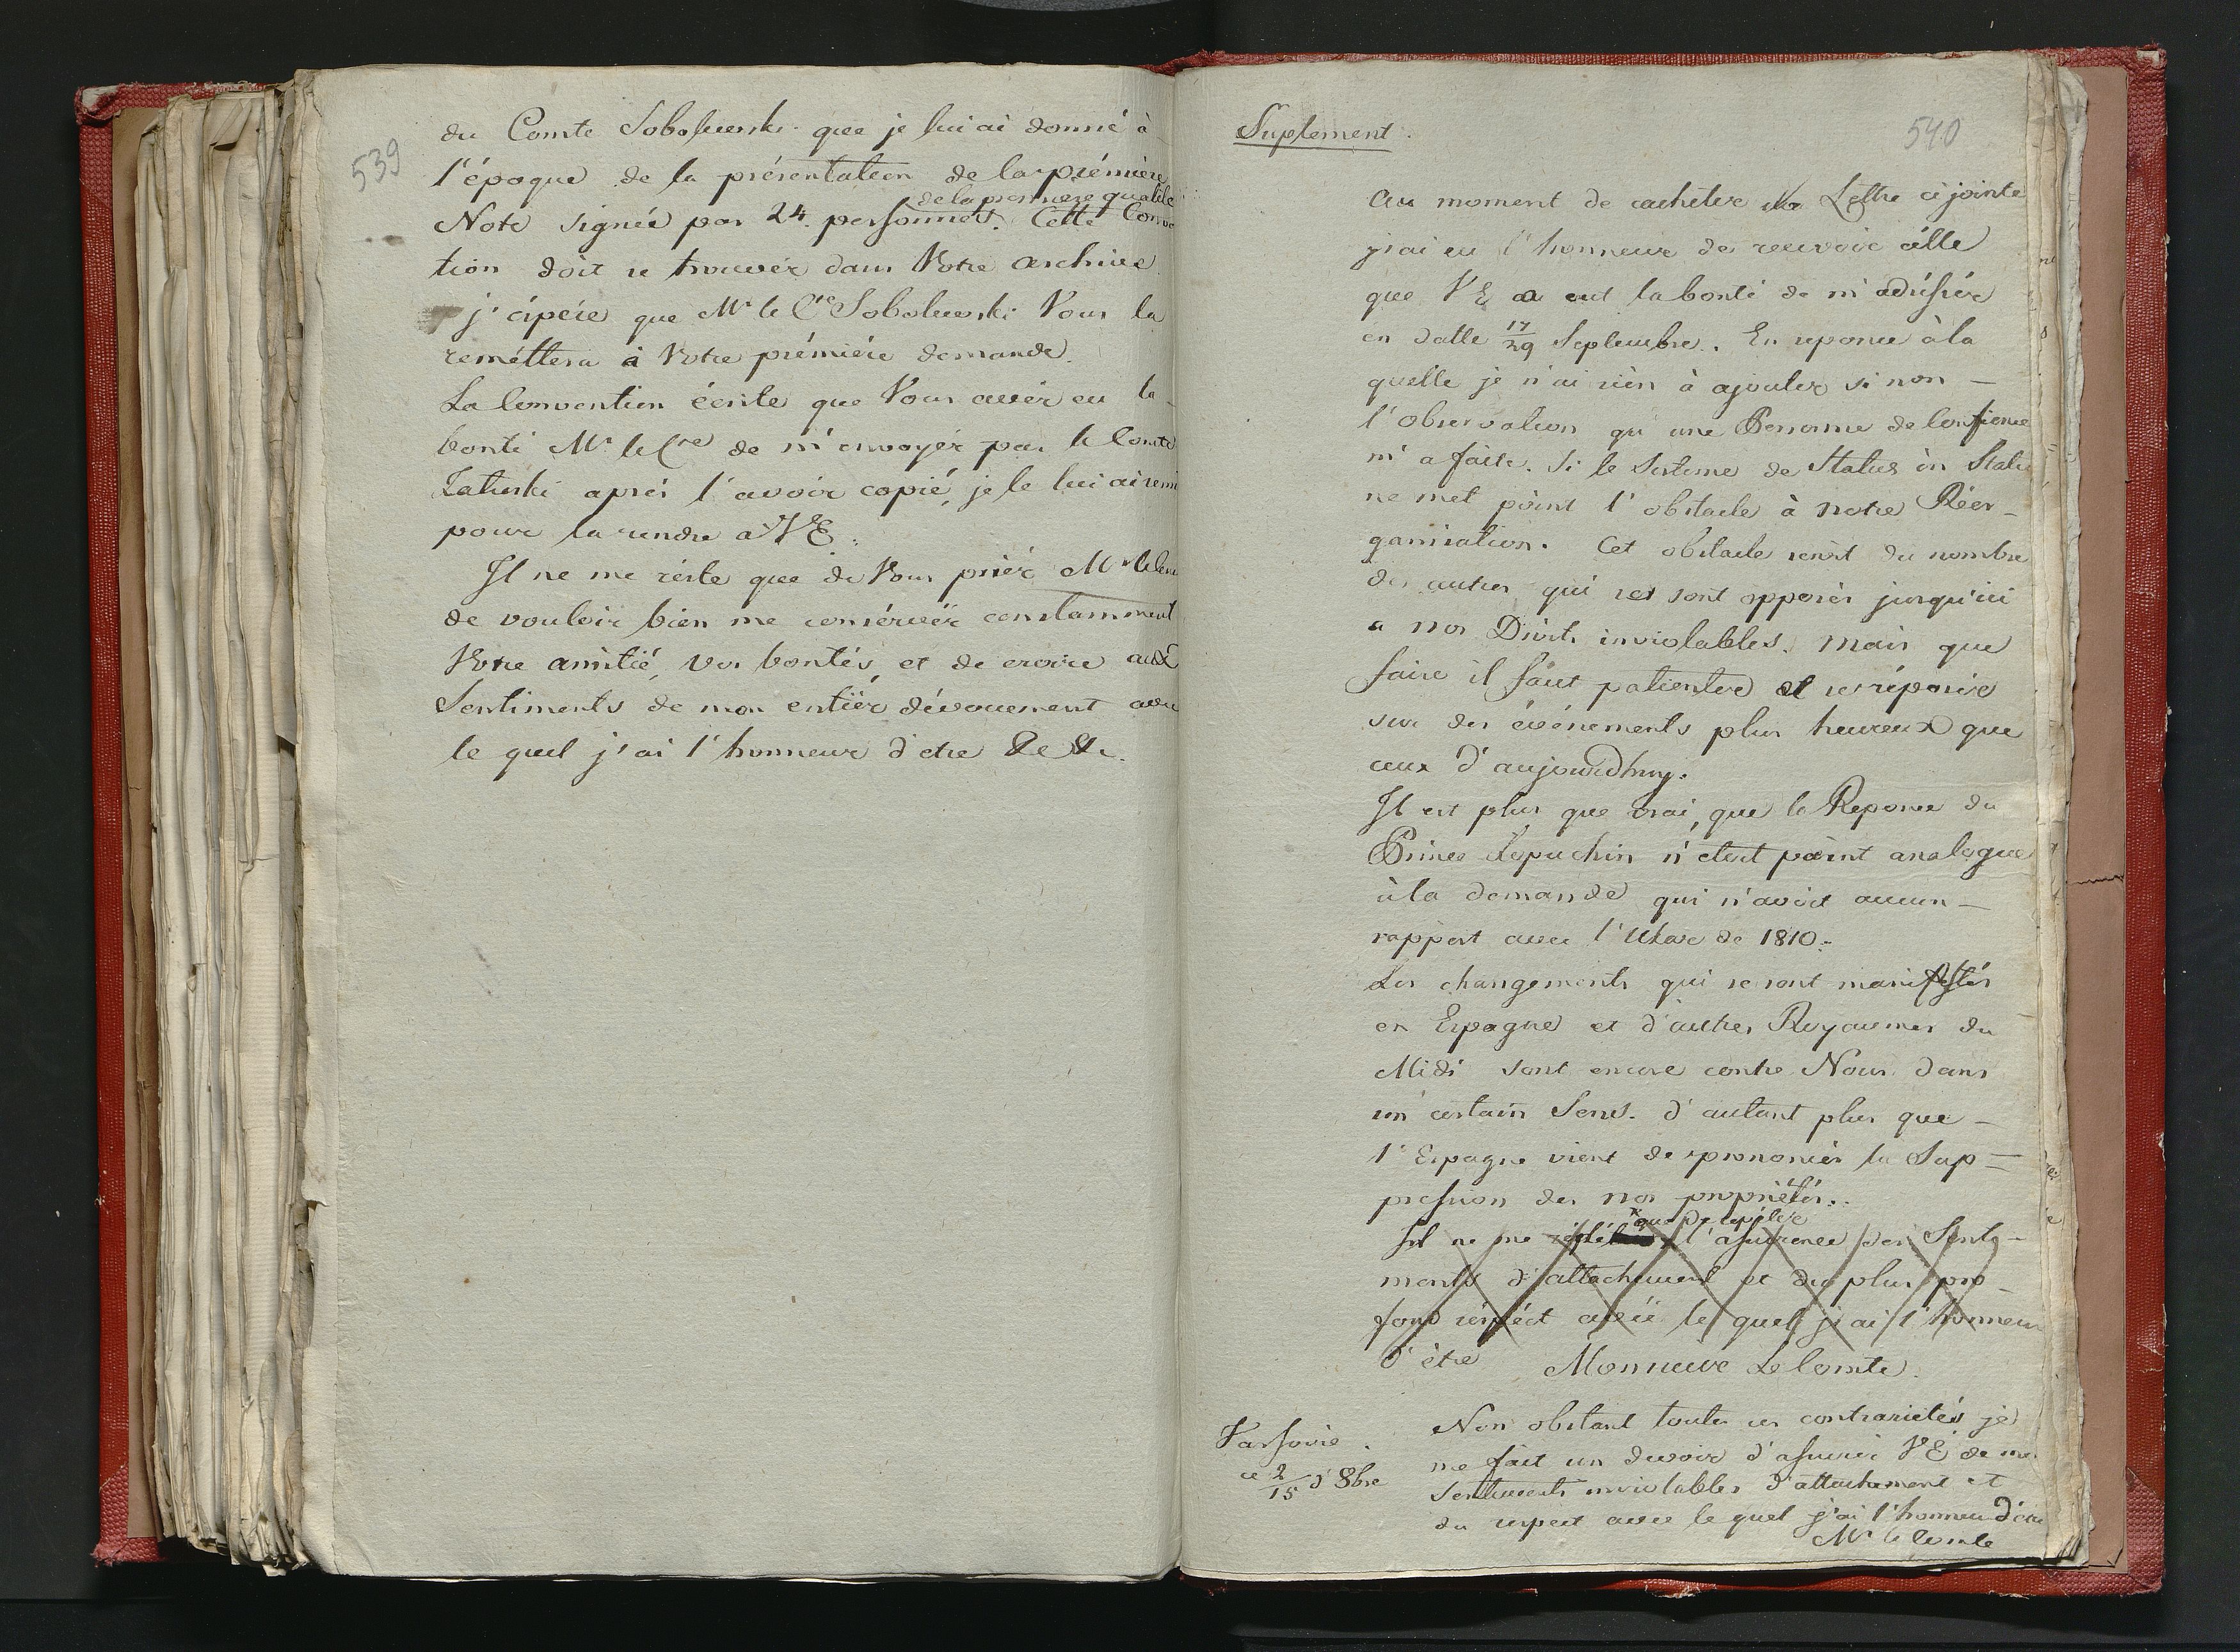 539
du Comte Sobolewski que je lui ai donné à
l'époque de la présentation de la prémière
de la première qualité
Note signée par 24 personnes. Cette Conve
tion doit se trouver dans Votre archive
j'éspére que Mr le Cte Sobolewski Vous la
reméttera à Votre prémiére demande.
La Convention écrite que Vous avéz eu la
bonté Mr le Cte de m'envoyér par le Comte
Zaluski aprés l'avoir copié, je le lui ai remi
pour la rendre a VE.
Il ne me réste que de Vous priér Mr le
de vouloir bien me consérvér constamment
Votre amitié, vos bontés, et de croire aux
Sentiments de mon entiér dévouement avec
le quel j'ai l'honneur d'etre &c &c.
Suplement.
540
Au moment de cachéter la Lettre ci jointe
j'ai eu l'honneur de recevoir célle
que VE a eut la bonté de m'adrésser
en datte 17/29 Septembre. En reponse à la
quelle je n'ai rién à ajouter si non
l'observation qu'une Personne de Confience
m'a faite. Si le Sisteme de Status in Statu
ne met point l'obstacle à notre Réor-
ganisation. Cet obstacle seroit du nombre
des autres qui se sont opposés jusqu'ici
a nos Droits inviolables. Mais que
faire il faut patienter et se réposér
sur des événements plus heureux que
ceux d'aujourdhuy.
Il est plus que vrai, que la Reponse du
Prince Lopuchin n'etoit point analogue
à la demande qui n'avoit aucun
rapport avec l'Ukase de 1810.
Les changements qui se sont manifestés
en Espagne et d'autres Royaumes du
Midi sont encore contre Nous dans
un certain Sens. d'autant plus que
l'Espagne vient de prononcer la Sup=
pression des nos propriétés.
que de repéter
Il ne me l'assurence des Senti-
ments d'attachement et du plus pro
fond réspéct avéc le quel j'ai l'honneur
d'être Monsieur Le Comte.
Non obstant toutes ces contrarietés je
me fait un devoir d'assurer VE de mes
Sentiments inviolables d'attachement et
du respect avec le quel j'ai l'honneur d'être
Mr le Comte
Varsovie.
ce 2/15 d'8bre